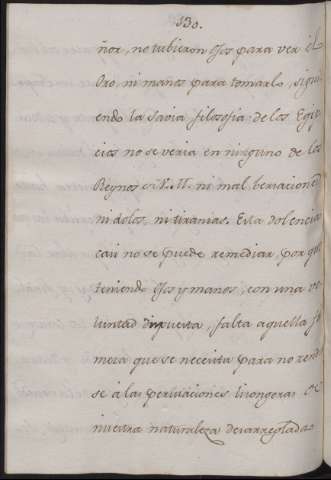 130.
ñor, no tubieron ojos para ver el
Oro, ni manos para tomarlo, sigui
endo la savia filosofia de los Egip
cios no se veria en ninguno de los
Reynos de V. M. ni mal bersacioned
ni dolos, ni tiranias. Esta dolencia
casi no se puede remediar, por que
teniendo ojos y manos, con una vo
luntad dispuesta, falta aquella fir
meza que se necesita para no rend
se á las persuaciones lisongeras de
nuestra naturaleza desarreglada